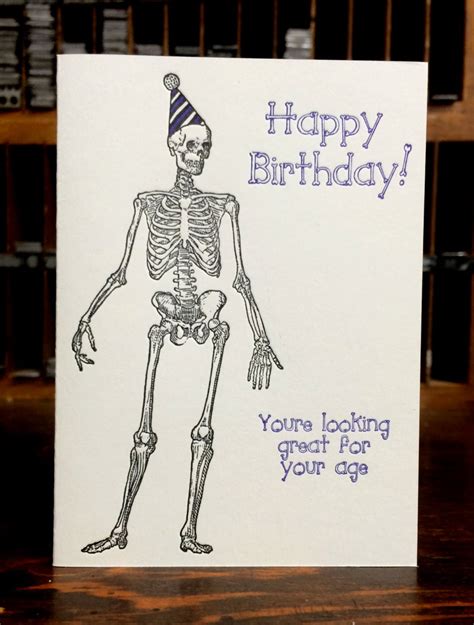 Happy
Birthday!
Youre looking
great for
your age